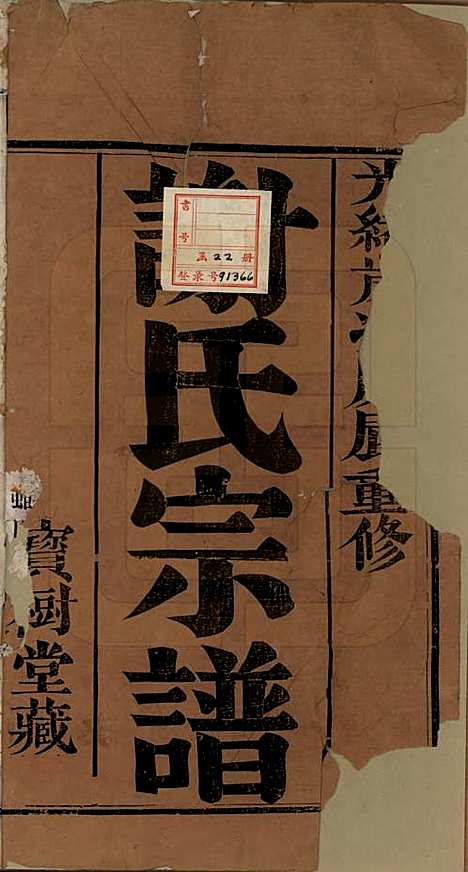 光緒
重修
謝氏宗譜
寶樹堂藏
書號
函22册
登录号91366